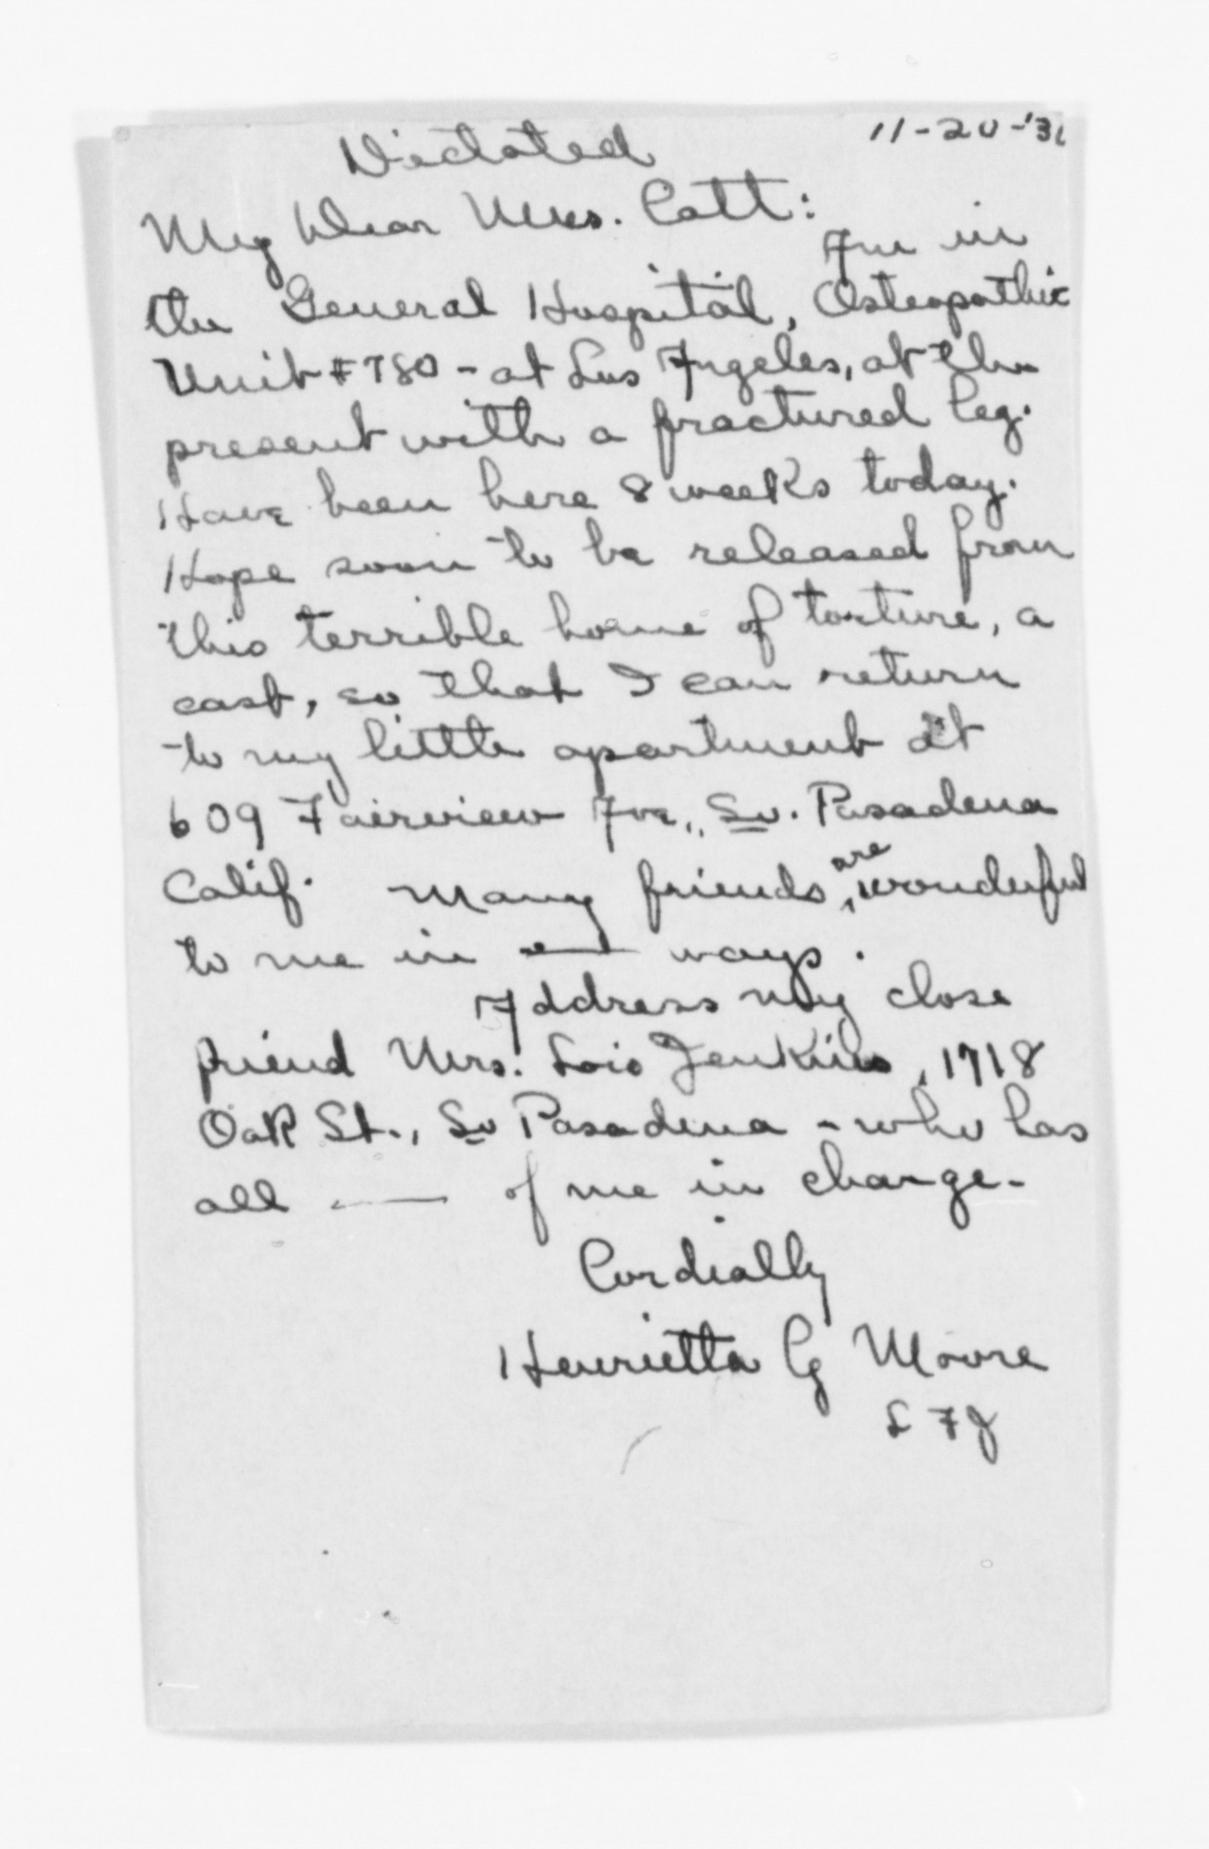 Dictated
11-20-'31
My Dear Mrs. Catt:
Am in
the General Hospital, Osteopathic
Unit #780 - at Los Angeles, at the
present with a fractured leg.
Have been here 8 weeks today.
Hope soon to be released from
this terrible home of torture, a
cast, so that I can return
to my little apartment at
609 Fairview Ave., So. Pasadena
Calif. Many friends, are wonderful
to me in ways.
Address my close
friend Mrs. Lois Jenkins, 1718
Oak St., So Pasadena - who has
all —— of me in charge-
Cordially
Henrietta G Moore
L F J